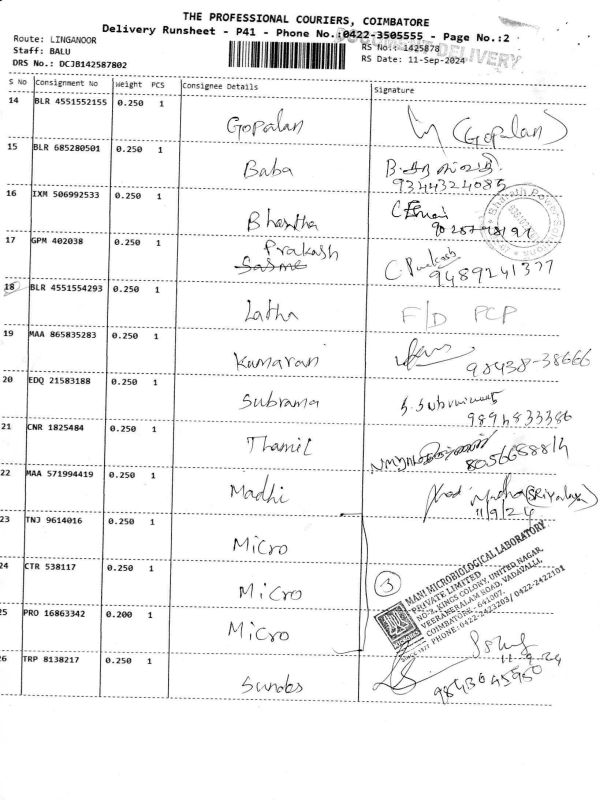 THE PROFESSIONAL COURIERS, COIMBATORE
Delivery Runsheet - P41 - Phone No.:0422-3505555 - Page No.:2
DOCUMENT DELIVERY
Route: LINGANOOR
RS No.: 1425878
Staff: BALU
RS Date: 11-Sep-2024
DRS No.: DCJB142587802
S No Consignment No Weight PCS Consignee Details Signature
14 BLR 4551552155 0.250 1 Gopalan (Gopalan)
15 BLR 685280501 0.250 1 Baba
9344324085
16 IXM 506992533 0.250 1 Bhantha
17 GPM 402038 0.250 1 Prakash C.
9489241377
18 BLR 4551554293 0.250 1 Latha F/D PCP
19 MAA 865835283 0.250 1 Kumaran
98438-38666
20 EDQ 21583188 0.250 1 Subrama
21 CNR 1825484 0.250 1 Thamil
22 MAA 571994419 0.250 1 Madhi
11/9/24
23 TNJ 9614016 0.250 1 Micro
24 CTR 538117 0.250 1 Micro
25 PRO 16863342 0.200 1 Micro
3
MANI MICROBIOLOGICAL LABORATORY
PRIVATE LIMITED
NO-2, KINGS COLONY, UNITED NAGAR,
VEERAKERALAM ROAD, VADAVALLI,
COIMBATORE - 641007.
PHONE: 0422-2423203/ 0422-2422101
SINCE 1977
26 TRP 8138217 0.250 1 Sundes
11-9-24
9843045950